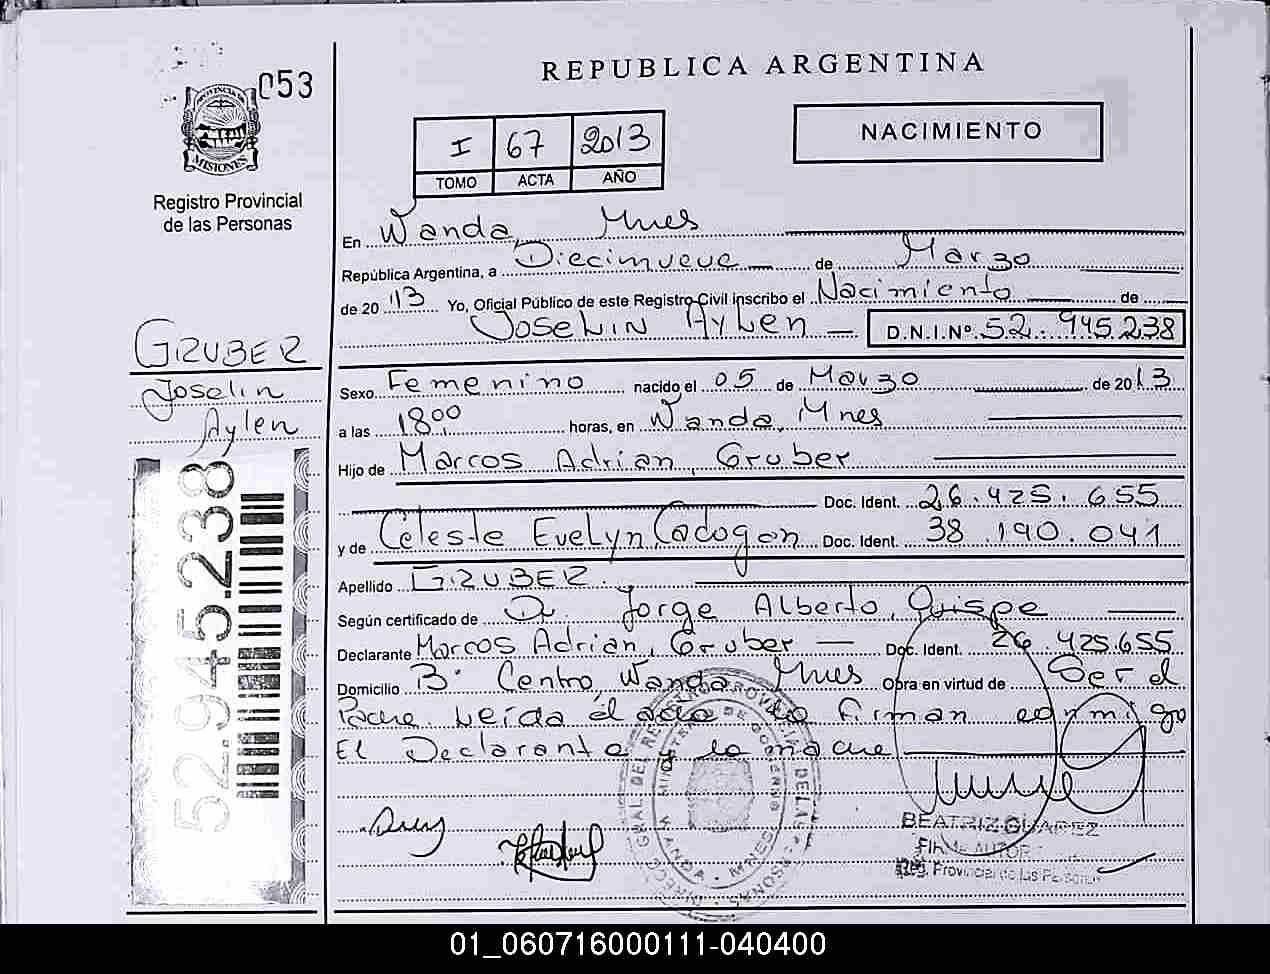 053
PROVINCIA DE
MISIONES
Registro Provincial
de las Personas
GRUBER
Joselin
Aylen
52.945.238
REPUBLICA ARGENTINA
I 67 2013
TOMO ACTA AÑO
NACIMIENTO
En Wanda, Mnes
República Argentina, a Diecinueve de Marzo
de 20 13 Yo, Oficial Público de este Registro Civil inscribo el Nacimiento de
Joselin Aylen D.N.I.Nº. 52.945.238
Sexo Femenino nacido el 05 de Marzo de 2013
a las 18,00 horas, en Wanda, Mnes
Hijo de Marcos Adrian, Gruber
Doc. Ident. 26.425.655
y de Celeste Evelyn, Cadogan Doc. Ident. 38.190.041
Apellido GRUBER.
Según certificado de Dr. Jorge Alberto, Quispe
Declarante Marcos Adrian, Gruber Doc. Ident. 26.425.655
Domicilio Bº Centro, Wanda Mnes Obra en virtud de Ser el
Padre Leída el acta la firman conmigo
El Declarante y la madre
WANDA - MNES
BEATRIZ SUAREZ
FIRMA AUTOR
Reg. Provincial de las Personas
01_060716000111-040400